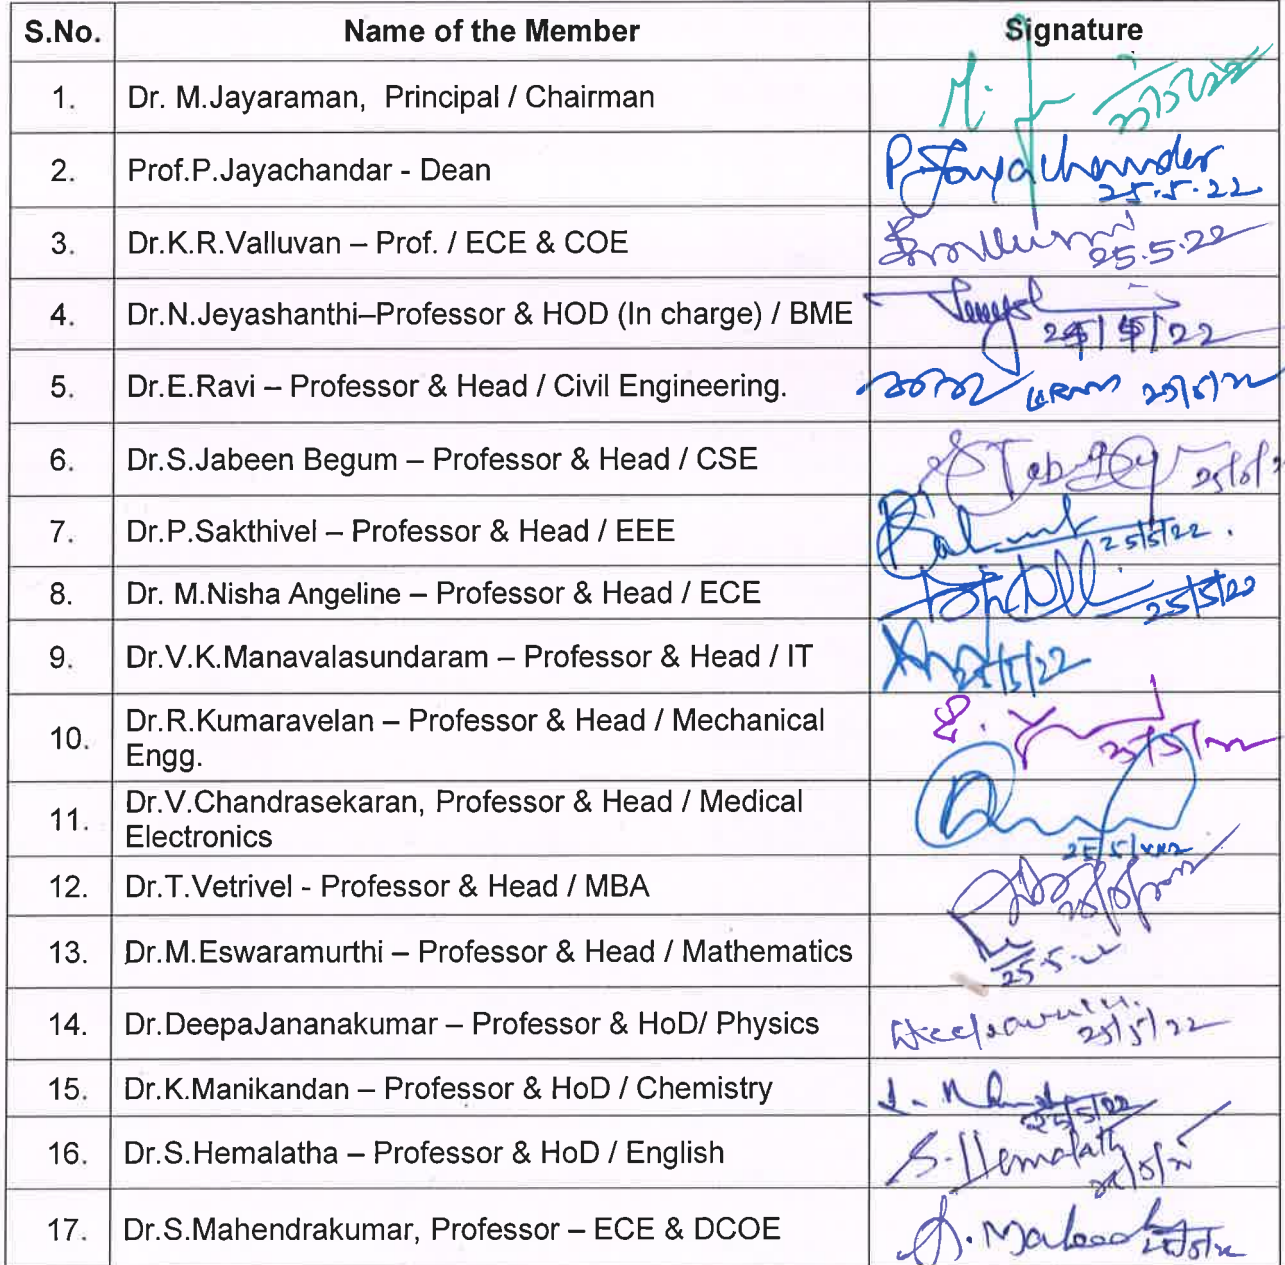 S.No. Name of the Member Signature
1. Dr. M.Jayaraman, Principal / Chairman
2. Prof.P.Jayachandar - Dean P. Jayachander
25.5.22
3. Dr.K.R.Valluvan – Prof. / ECE & COE
25.5.22
4. Dr.N.Jeyashanthi–Professor & HOD (In charge) / BME
5. Dr.E.Ravi – Professor & Head / Civil Engineering.
6. Dr.S.Jabeen Begum – Professor & Head / CSE
7. Dr.P.Sakthivel – Professor & Head / EEE 25/5/22.
8. Dr. M.Nisha Angeline – Professor & Head / ECE
25/5/22
9. Dr.V.K.Manavalasundaram – Professor & Head / IT
25/5/22
10. Dr.R.Kumaravelan – Professor & Head / Mechanical
Engg.
11. Dr.V.Chandrasekaran, Professor & Head / Medical
Electronics
12. Dr.T.Vetrivel - Professor & Head / MBA
13. Dr.M.Eswaramurthi – Professor & Head / Mathematics
14. Dr.DeepaJananakumar – Professor & HoD/ Physics
25/5/22
15. Dr.K.Manikandan – Professor & HoD / Chemistry
25/5/22
16. Dr.S.Hemalatha – Professor & HoD / English S. Hemalatha
17. Dr.S.Mahendrakumar, Professor – ECE & DCOE